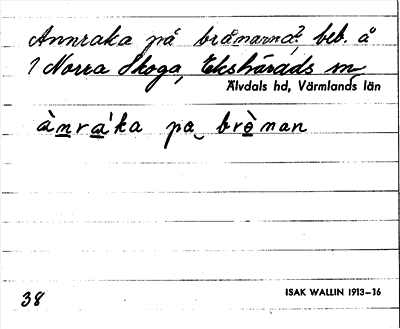 Annraka på brånarna?, beb. å
1 Norra Skoga, Ekshärads sn
Älvdals hd, Värmlands län
ànráka pa brènan
38
ISAK WALLIN 1913–16